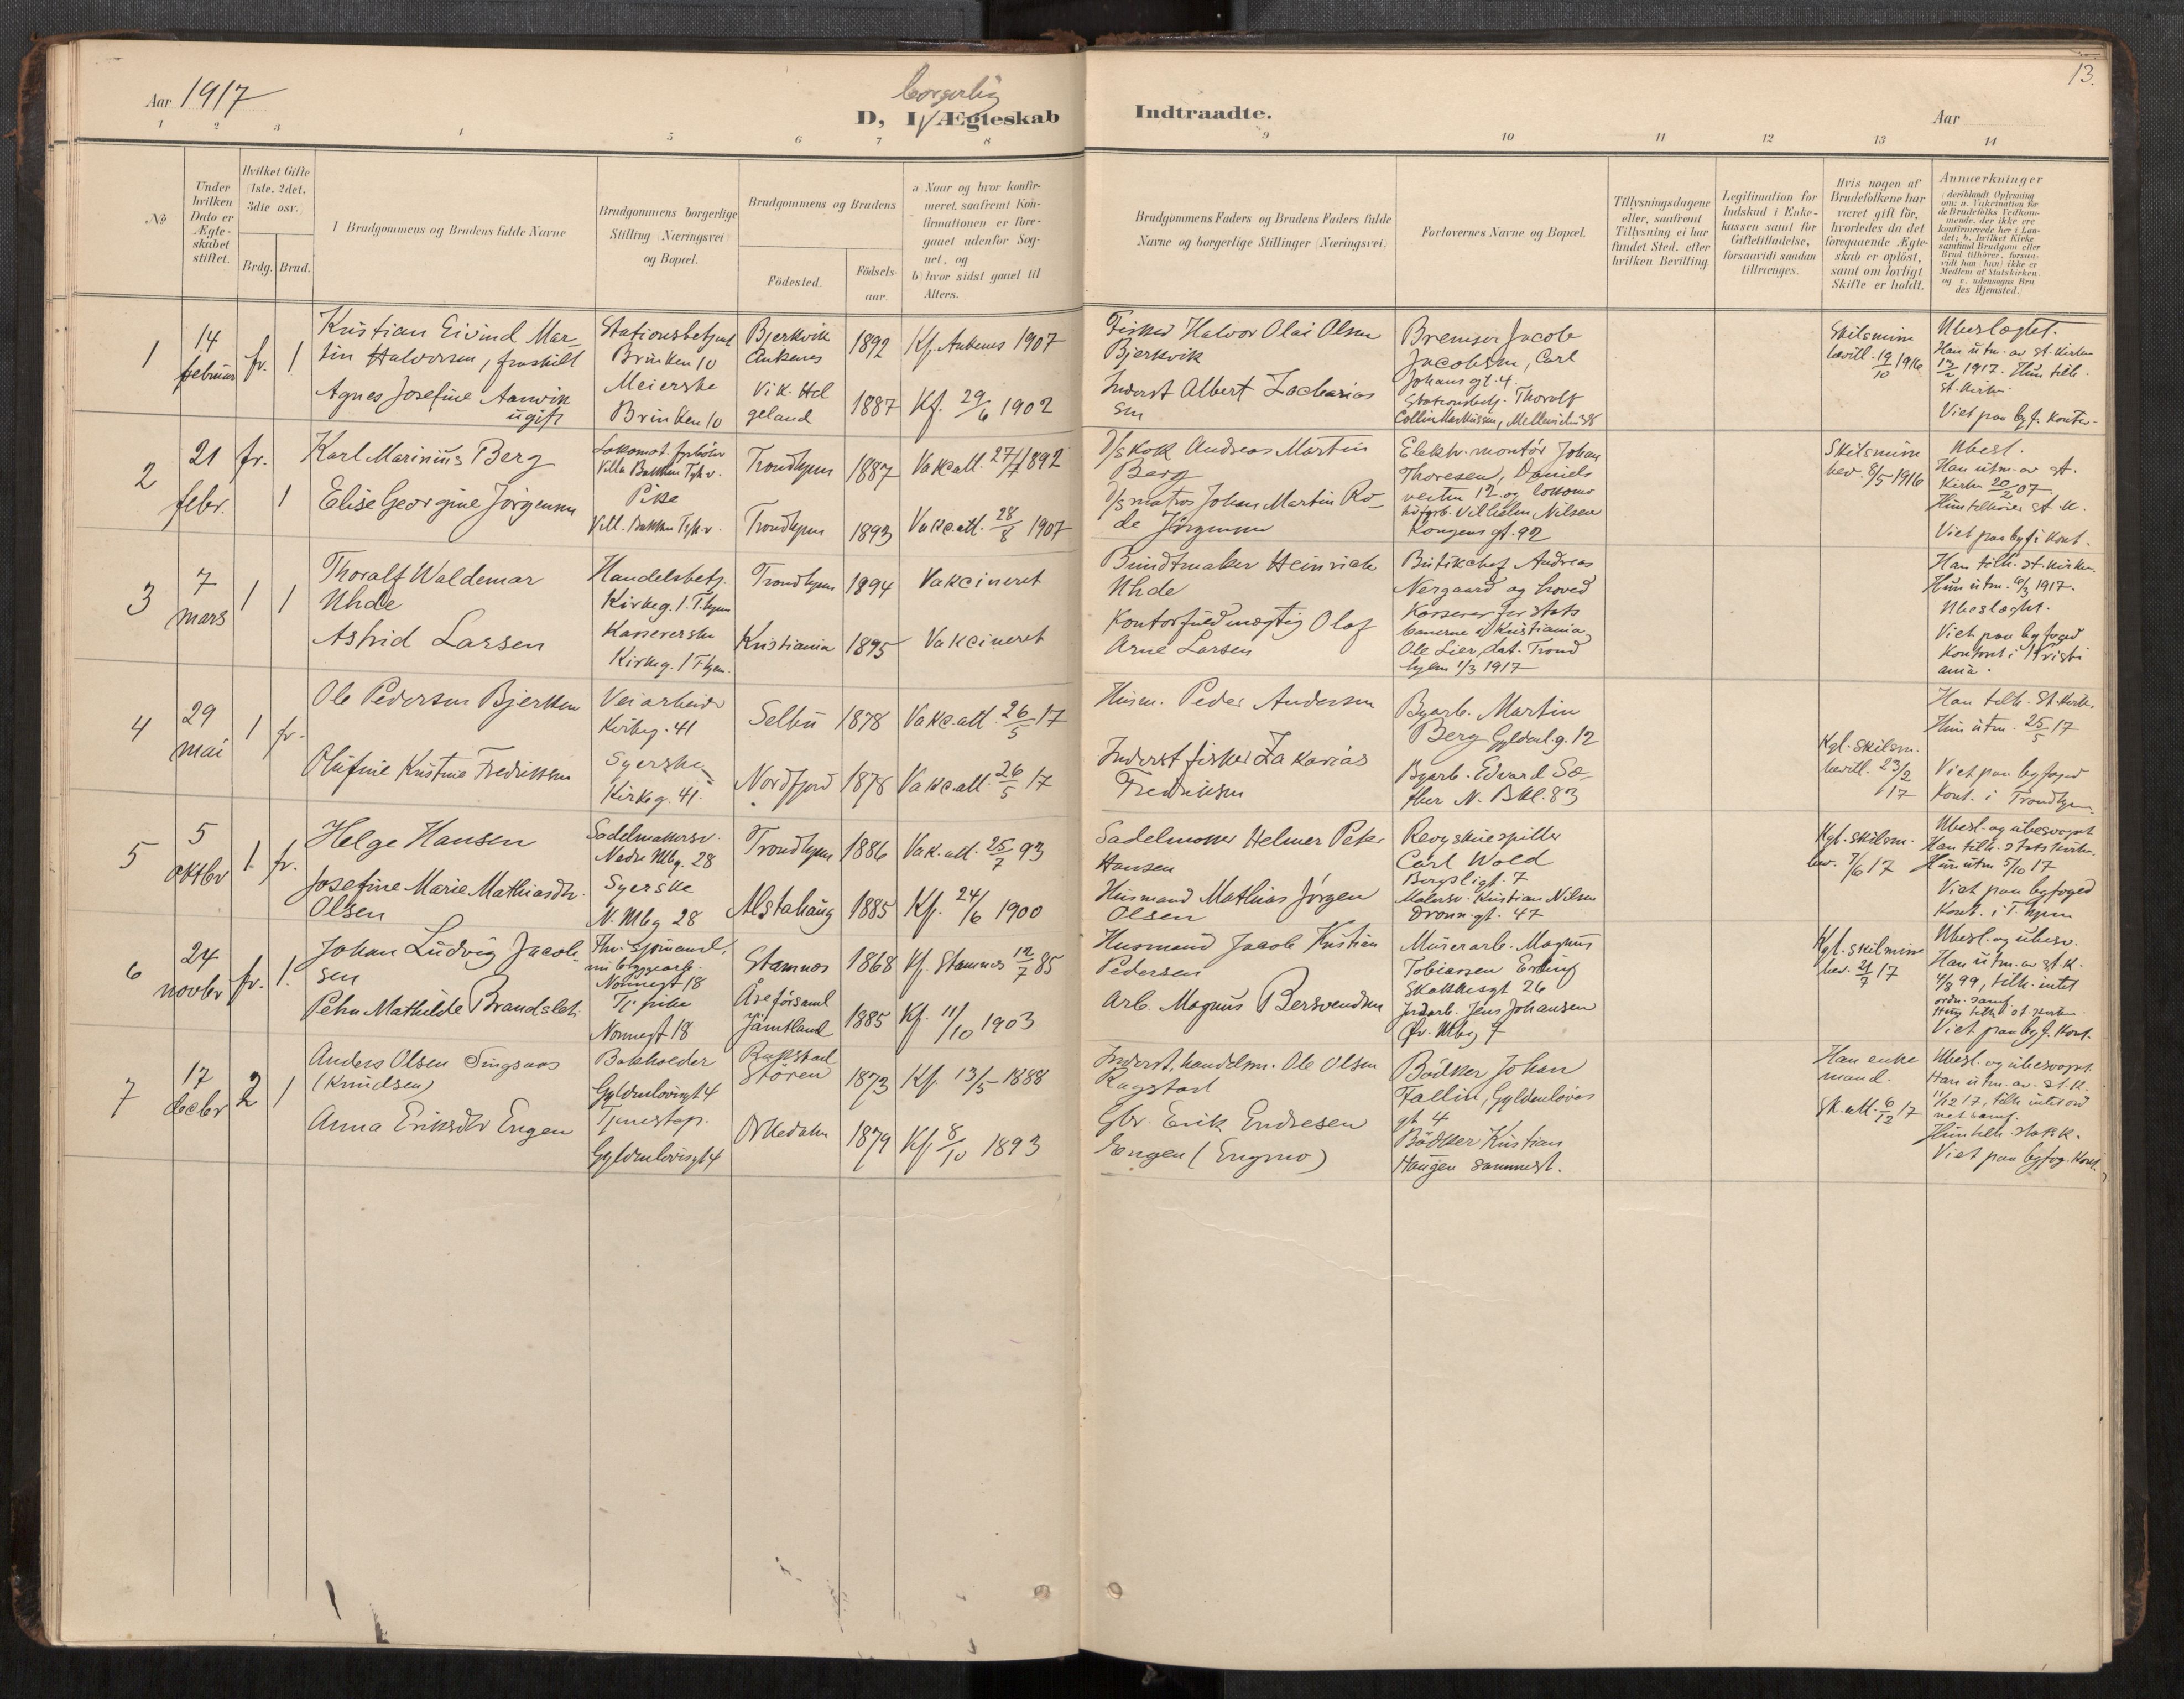 Aar 1917
borgerlig
D, I Ægteskab Indtraadte.
Aar
13.
1 2 3 4 5 6 7 8 9 10 11 12 13 14
No
Under
hvilken
Dato er
Ægte-
skabet
stiftet.
Hvilket Gifte
1ste, 2det,
3die osv.
Brdg. Brud.
Brudgommens og Brudens fulde Navne
Brudgommens borgerlige
Stilling (Næringsvei)
og Bopæl.
Brudgommens og Brudens
Fødested.
Fødsels-
aar.
a) Naar og hvor konfir-
meret, saafremt Kon-
firmationen er fore-
gaaet udenfor Sog-
net, og
b) hvor sidst gaaet til
Alters.
Brudgommens Faders og Brudens Faders fulde
Navne og borgerlige Stillinger (Næringsvei).
Forlovernes Navne og Bopæl.
Tillysningsdagene
eller, saafremt
Tillysning ei har
fundet Sted, efter
hvilken Bevilling.
Legitimation for
Indskud i Enke-
kassen samt for
Giftetilladelse,
forsaavidt saadan
tiltrænges.
Hvis nogen af
Brudefolkene har
været gift før,
hvorledes da det
foregaaende Ægte-
skab er opløst,
samt om lovligt
Skifte er holdt.
Anmærkninger
(deriblandt Oplysning
om: a. Vakcination for
de Brudefolks Vedkom-
mende, der ikke ere
konfirmerede her i Lan-
det; b. hvilket Kirke-
samfund Brudgom eller
Brud tilhører, forsaa-
vidt han (hun) ikke er
Medlem af Statskirken,
og c. udensogns Bru-
des Hjemsted.)
1
14
februar
fr. 1
Kristian Eivind Mar-
tin Halvorsen, fraskilt
Agnes Josefine Aanvik
ugift
Stationsbetjent
Brinken 10
Meierske
Brinken 10
Bjerkvik
Ankenes
Vik. Hel
geland
1892
1887
Kf. Ankenes 1907
Kf. 29/6 1902
Fisker Halvor Olai Olsen
Bjerkvik
Inderst Albert Zacharias
sen
Bremser Jacob
Jacobsen, Carl
Johans gt. 4.
Stationsbetj. Thoralf
Skilsmisse
bevill. 19/10 1916
Ubeslægtet.
Han utm. av st. kirken
13/2 1917. Hun tilh.
st. kirke
Viet paa byf. kontor
2
21
febr.
fr.
1
Karl Marinius Berg
Elise Georgine Jörgensen
Lokomot. fyrbøter
Villa Bakken
Pike
Vill. Bakken
Trondhjem
Trondhjem
1887
1893
Vakc.att. 27/7 1892
Vakc.att. 28/8 1907
D/S kok Andreas Martin
Berg
D/S matros Johan Martin Ro-
de Jörgensen
Elektr. montör Johan
Thoresen, Daniels
veiten 12. og lokomo
Vilhelm Nilsen
Kongens gt. 92
Skilsmisse
bev. 8/5 1916
Ubesl.
Han utm. av st.
kirken 20/2 07
Hun tilhörer st. k.
Viet paa byf. kont.
3
7
mars
1 1
Thoralf Waldemar
Uhde
Astrid Larsen
Handelsbetj.
Kirkeg. 1. T.hjem
Kassererske
Kirkeg. 1 T.hjem.
Trondhjem
Kristiania
1894
1895
Vakcineret
Vakcineret
Bundtmaker Heinrich
Uhde
Kontorfuldmægtig Olaf
Arne Larsen
Butikchef Andreas
Nergaard og hoved
kasserer for stats
banerne i Kristiania
Ole Lier, dat. Trond
hjem 1/3 1917
Han tilh. st. kirken.
Hun utm. 6/3 1917.
Ubeslægtet.
Viet paa byfoged
kontoret i Kristi
ania.
4
29
mai
1 fr.
Ole Pedersen Bjerkan
Olufine Kristine Fredriksen
Veiarbeider
Kirkeg. 41
Syerske
Kirkeg. 41.
Selbu
Nordfjord
1878
1878
Vakc.att. 26/5 17
Vakc.att. 26/5 17
Husm. Peder Andersen
Inderst fisker Zakarias
Fredriksen
Byarb. Martin
Berg Gyldenl.g. 12
Byarb. Edvard Sæ-
ther N. Bkl. 83
Kgl. skilsm.
bevill. 23/2
17
Han tilh. st. kirke,
Hun utm. 25/5 17
Viet paa byfoged
kont. i Trondhjem
5
5
oktbr
1. fr.
Helge Hansen
Josefine Marie Mathiasdtr.
Olsen
Sadelmakersv.
Nedre Mbg. 28
Syerske
N. Mbg 28
Trondhjem
Alstahaug
1886
1885
Vak. att. 25/7 93
Kf. 24/6 1900
Sadelmaker Helmer Peter
Hansen
Husmand Mathias Jörgen
Olsen
Revyskuespiller
Carl Wold
Bergsligt. 7
Malersv. Kristian Nilsen
Dronn. gt. 47
Kgl. skilsm.
bev. 7/6 17
Ubesl. og ubesvogret
Han tilh. statskirken,
Hun utm 5/10 17
Viet paa byfoged
kont. i T.hjem
6
24
novbr
fr. 1.
Johan Ludvig Jacob-
sen
Petra Mathilde Brandslet
Nonnegt 18
Tj. pike
Nonnegt 18
Stamnes
Åse församl
Jämtland
1868
1885
Kf. Stamnes 12/7 85
Kf. 11/10 1903
Husmand Jacob Kristian
Pedersen
Arb. Magnus Bersvendsen
Murerarb. Magnus
Tobiassen Erling
Skakkesgt 26
Jordarb. Jens Johansen
Øv. Mbg 7
Kgl. skilsmisse
bev. 21/7 17
Ubesl. og ubesv.
Han utm. av st. k.
4/8 99, tilh. intet
ordn. samf.
Hun tilh. st. kirken
Viet paa byf. kont.
7
17
decbr
2 1
Anders Olsen Singsaas
(Knudsen)
Anna Eriksdtr Engen
Bokholder
Gyldenløvesgt 4
Tjenestep.
Gyldenløvesgt 4
Stören
Orkedalen
1873
1879
Kf. 13/5 1888
Kf 8/10 1893
Inderst, handelsm. Ole Olsen
Rugstad
Gbr. Erik Endresen
Engen (Engmo)
Bödker Johan
Fallin, Gyldenløves
gt 4
Bödker Kristian
Haugen sammest.
Han enke
mand.
Sk. att. 6/12 17
Ubesl. og ubesvogret
Han utm. av st. k.
11/12 17, tilh. intet ord
net samf.
Hun tilh. stats k.
Viet paa byfog. kont.